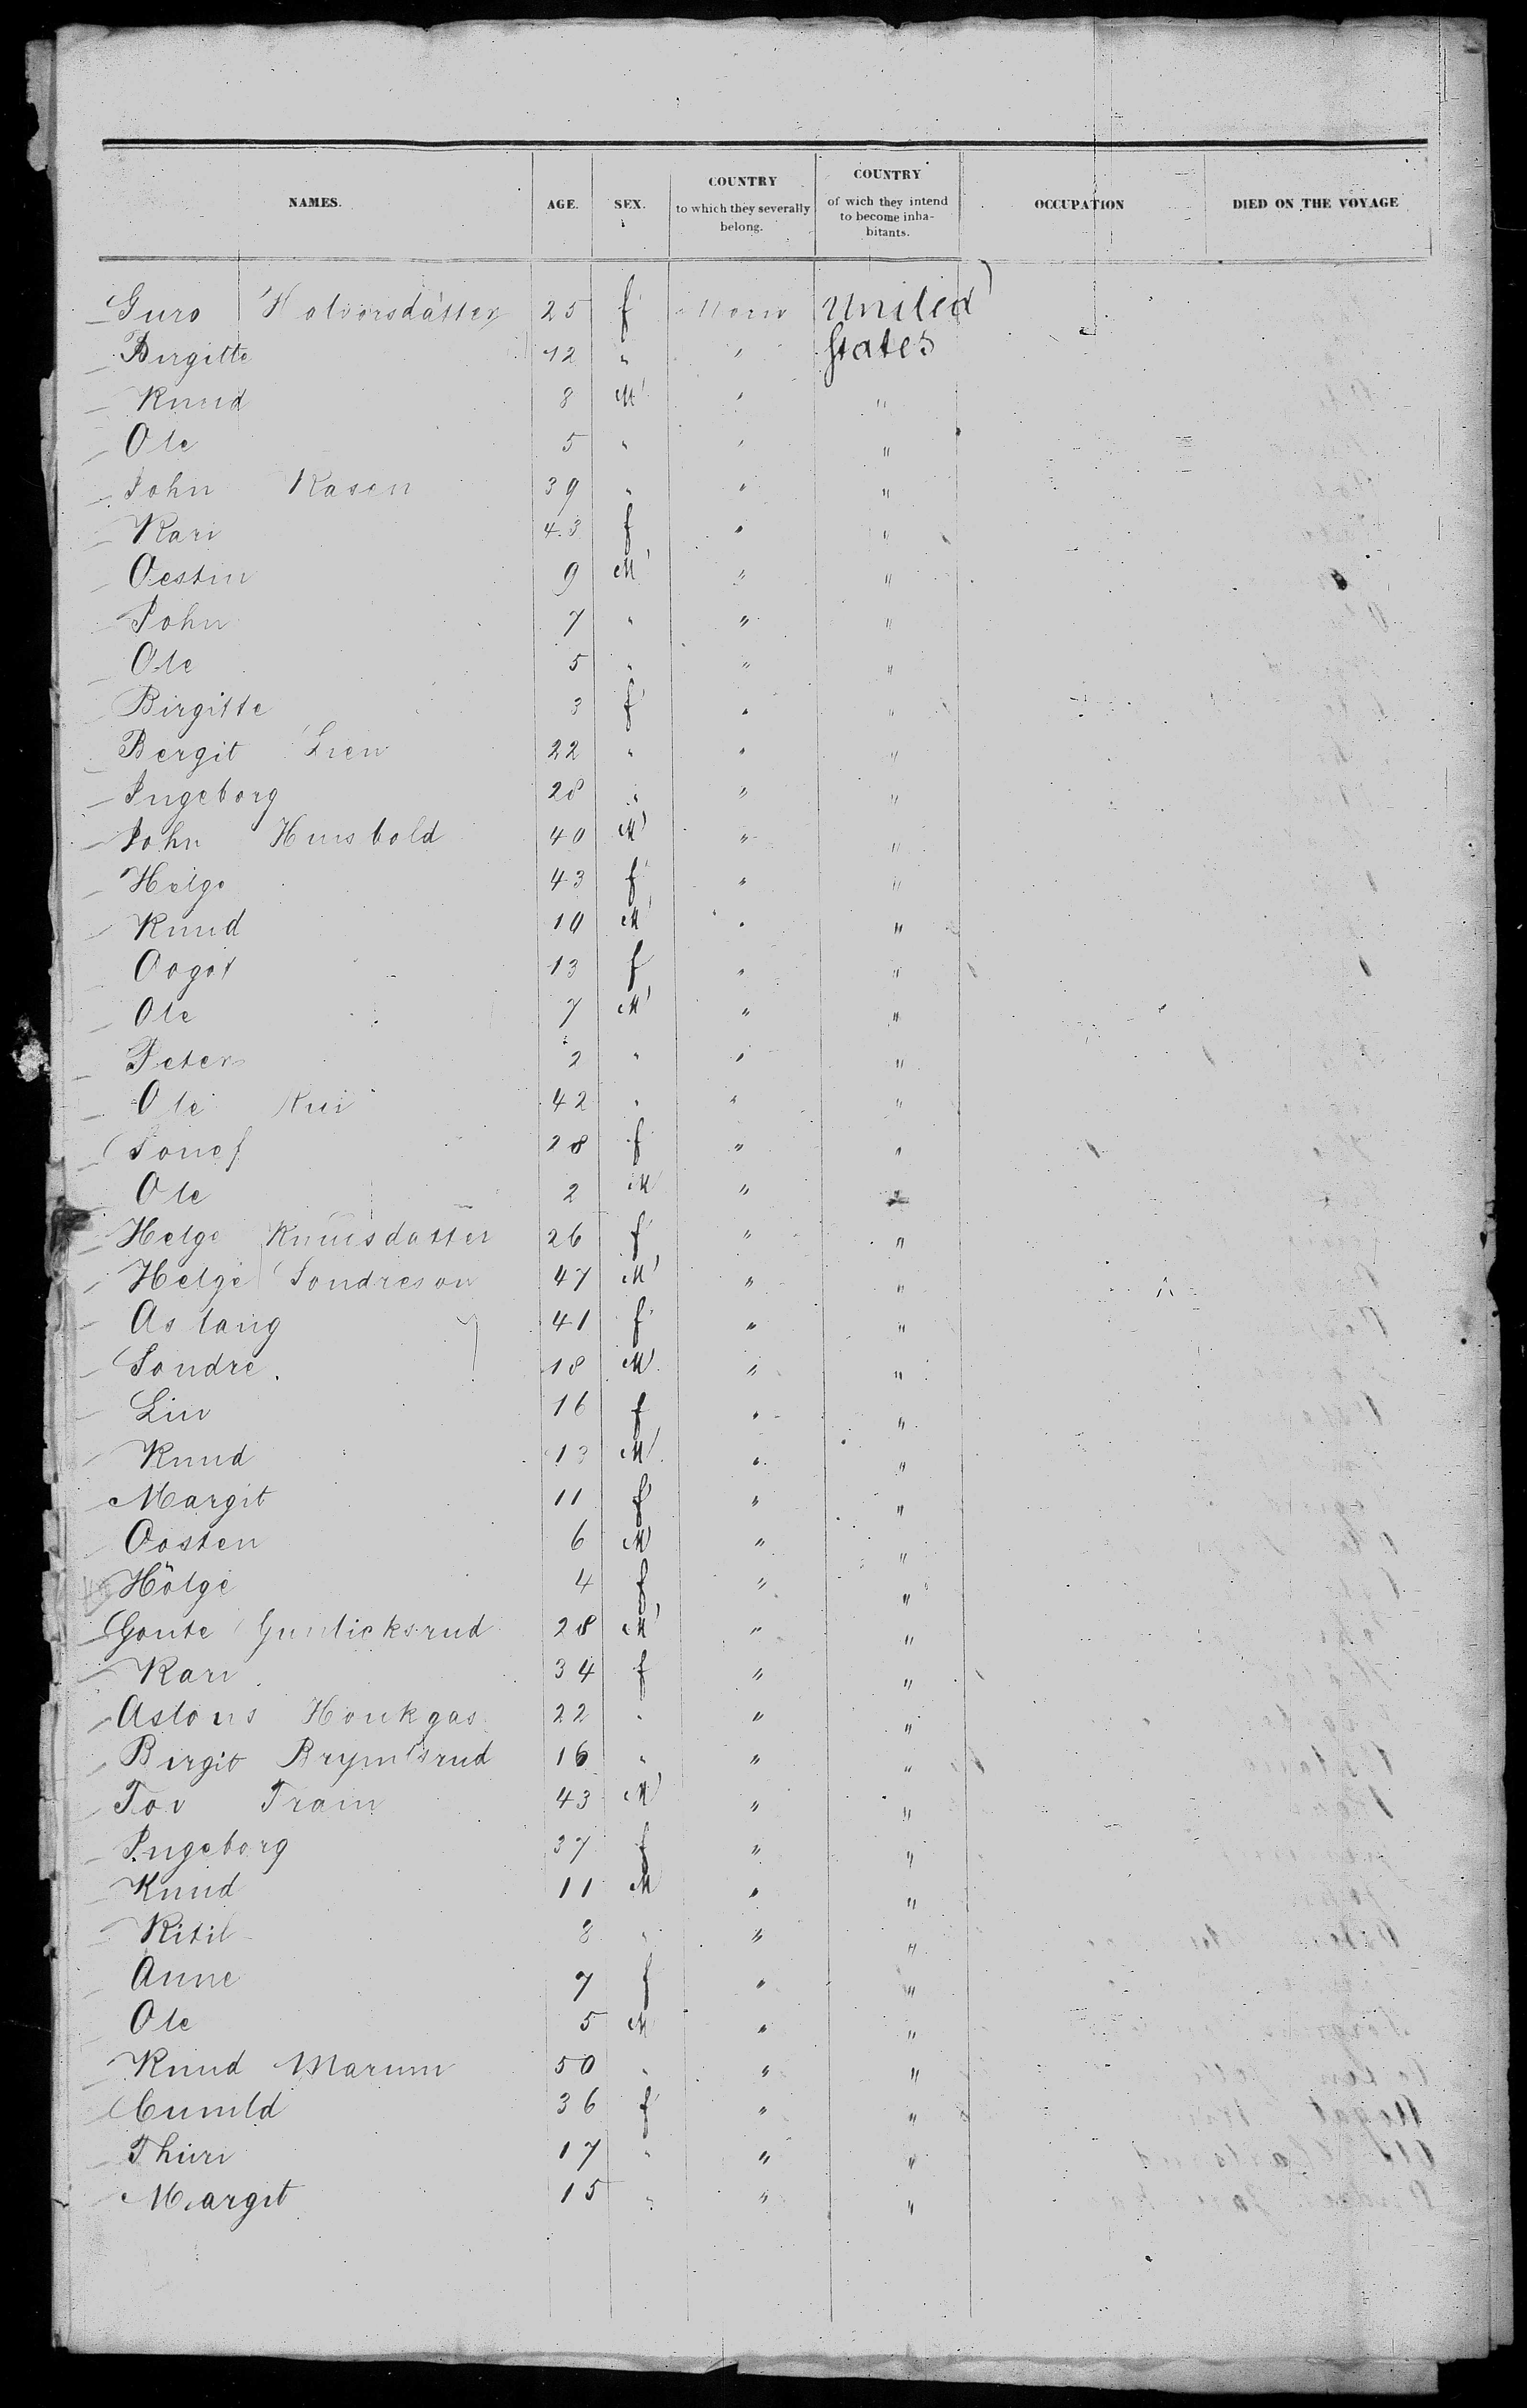 NAMES. AGE. SEX. COUNTRY to which they severally belong. COUNTRY of wich they intend to become inha-bitants. OCCUPATION DIED ON THE VOYAGE
Guro Halvorsdatter 25 f Norw United
Birgitte 12 " " States
Knud 8 M " "
Ole 5 " " "
John Rasen 39 " " "
Kari 43 f " "
Oestin 9 M " "
John 7 " " "
Ole 5 " " "
Birgitte 3 f " "
Bergit Lien 22 " " "
Ingeborg 28 " " "
John Husbold 40 M " "
Helge 43 f " "
Knud 10 M " "
Aagot 13 f " "
Ole 7 M " "
Peter 2 " " "
Ole Rui 42 " " "
28 f " "
Ole 2 M " "
Helge Knudsdatter 26 f " "
Helge Sondreson 47 M " "
Aslaug 41 f " "
Sondre. 18 M " "
Liv 16 f " "
Knud 13 M " "
Margit 11 f " "
Oosten 6 M " "
Hölge 4 f " "
Goute 28 M " "
Kari 34 f " "
22 " " "
Birgit 16 " " "
Tov Train 43 M " "
Ingeborg 37 f " "
Knud 11 M " "
Kitil 8 " " "
Anne 7 f " "
Ole 5 M " "
Knud Marum 50 " " "
Gunild 36 f " "
Thuri 17 " " "
Margit 15 " " "